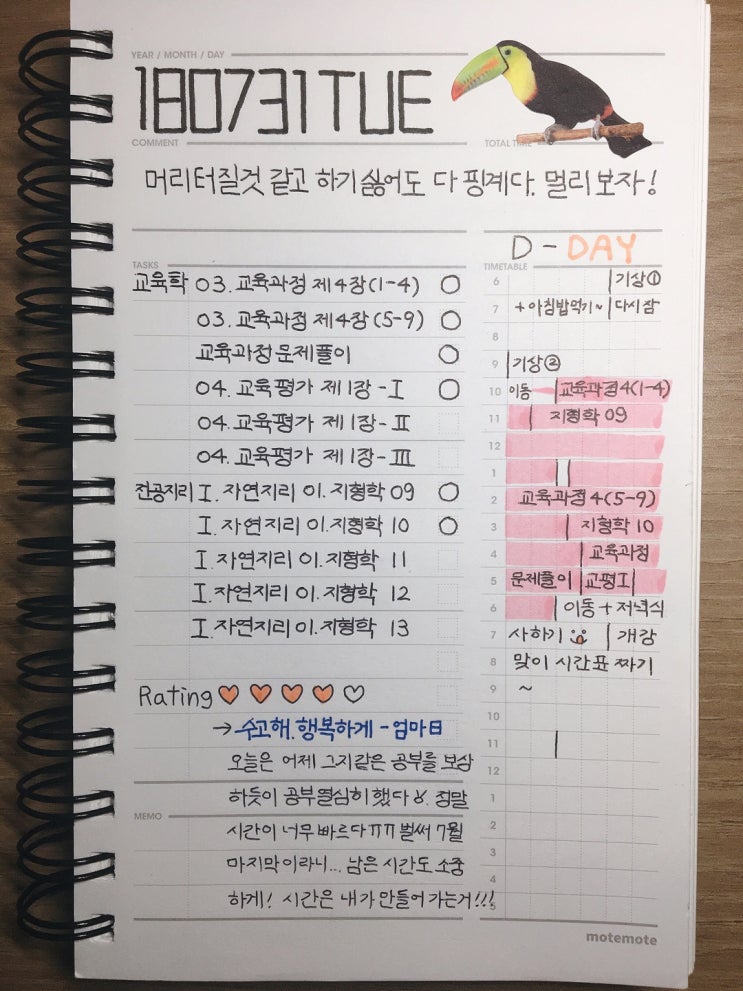 YEAR / MONTH / DAY
180731TUE
COMMENT
TOTAL TIME
머리터질것 같고 하기싫어도 다 핑계다. 멀리보자!
D-DAY
TASKS
교육학 03. 교육과정 제4장(1-4) ○
03. 교육과정 제4장(5-9) ○
교육과정 문제풀이 ○
04. 교육평가 제1장-Ⅰ ○
04. 교육평가 제1장-Ⅱ
04. 교육평가 제1장-Ⅲ
전공지리 Ⅰ. 자연지리 01. 지형학 09 ○
Ⅰ. 자연지리 01. 지형학 10 ○
Ⅰ. 자연지리 01. 지형학 11
Ⅰ. 자연지리 01. 지형학 12
Ⅰ. 자연지리 01. 지형학 13
Rating ♥♥♥♥♡
→ 수고해. 행복하게 - 엄마日
오늘은 어제 그지같은 공부를 보상
하듯이 공부열심히했다 정말
MEMO
시간이 너무 빠르다ㅠㅠ 벌써 7월
마지막이라니... 남은 시간도 소중
하게! 시간은 내가 만들어가는거!!!
TIMETABLE
6 기상①
7 +아침밥먹기~ 다시잠
8
9 기상②
10 이동 교육과정4(1-4)
11 지형학 09
12
1
2 교육과정4(5-9)
3 지형학 10
4 교육과정
5 문제풀이 교평Ⅰ
6 이동+저녁식
7 사하기 개강
8 맞이 시간표 짜기
9 ~
10
11
12
1
2
3
4
5
motemote